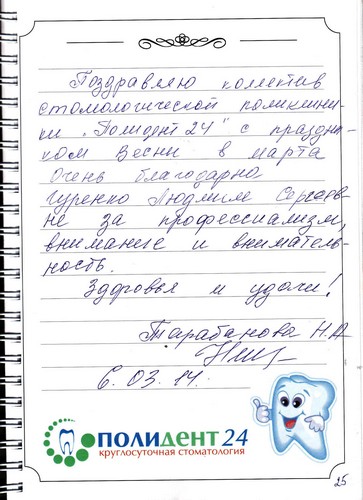 Поздравляю коллектив
стомологической поликлини-
ки "Полидент 24" с праздни-
ком Весны 8 марта
Очень благодарна
Гуренко Людмиле Сергеев-
не за профессионализм,
внимание и вниматель-
ность.
Здоровья и удачи!
Тарабанова Н.А
6.03.14.
ПОЛИДЕНТ 24
круглосуточная стоматология
25